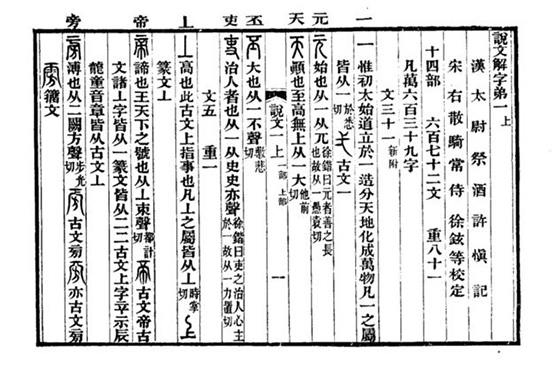 說文解字弟一上
漢太尉祭酒許慎記
宋右散騎常侍徐鉉等校定
十四部 六百七十二文 重八十一
凡萬六百三十九字
文三十一新附
一
一惟初太始道立於一造分天地化成萬物凡一之屬
皆从一於悉切 弌古文一
元
元始也从一从兀徐鍇曰元者善之長也故从一愚袁切
天
天顛也至高無上从一大他前切
說文一上 一部 上部 一
丕
丕大也从一不聲敷悲切
吏
吏治人者也从一从史史亦聲徐鍇曰吏之治人心主於一故从一力置切
文五 重一
丄
丄高也此古文上指事也凡丄之屬皆从丄時掌切 上
篆文丄
帝
帝諦也王天下之號也从丄朿聲都計切 帝古文帝古
文諸丄字皆从一篆文皆从二二古文上字䇂示辰
龍童音章皆从古文丄
旁
旁溥也从二闕方聲步光切 旁古文旁 旁亦古文旁
旁籀文